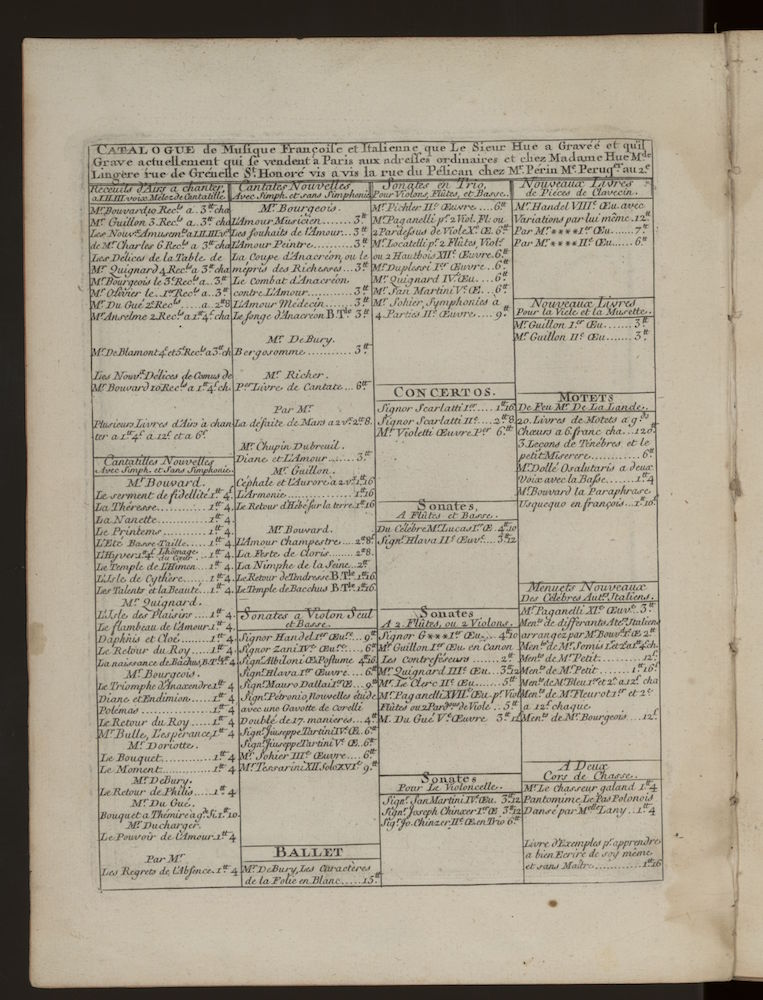 CATALOGUE de Musique Françoise et Italienne que Le Sieur Hue a Gravéé et qu'il
Grave actuellement qui se vendent a Paris aux adresses ordinaires et chez Madame Hue Mde
Lingère rue de Grenelle St. Honoré vis a vis la rue du Pélican chez Mr. Périn Mr. Peruqer. au 2e
Receuils d'Airs a chanter
a I. II. III voix Mélez de Cantatille
Mr. Bouvard 10 Recls a . 3tt cha
Mr. Guillon 3. Recls a . 3tt cha
Les Nouvx Amusemts a I. II. III vx
de Mr. Charles 6 Recls a . 3tt cha
Les Délices de la Table de
Mr. Quignard 4 Recls a 3tt cham
Mr. Bourgeois le 3e Recls a .. 3tt
Mr. Olivier le .. 1er Recls a .. 3tt
Mr. Du Gué 2e Recls .... a . 2tt 8
Mr. Anselme 2 Recls a 1tt 4s cha
Mr. De Blamont 4e et 5e Recls a 3tt ch
Les Nouvx Délices de Comus de
Mr. Bouvard 10 Recls a 1tt 4s ch.
Plusieurs Livres d'Airs à chan
ter a 1tt 4s a 12s et a 6s
Cantatilles Nouvelles
Avec Simph. et Sans Simphonie.
Mr. Bouvard.
Le serment de fidellité 1tt 4s
La Thérese .......... 1tt 4
La Nanette .......... 1tt 4
Le Printems .......... 1tt 4
L'Eté Basse-Taille ..... 1tt 4
L'Hyver 1tt 4s L'hômage du Cœur .. 1tt 4
Le Temple de L'Himen ... 1tt 4
L'Isle de Cythère ...... 1tt 4
Les Talents et la Beauté .. 1tt 4
Mr. Quignard.
L'Isle des Plaisirs .... 1tt 4
Le flambeau de l'Amour 1tt 4
Daphnis et Cloé ...... 1tt 4
Le Retour du Roy ..... 1tt 4
La naissance de Bachus, B. Tlle 1tt 4
Mr. Bourgeois.
Le Triomphe d'Anaxendre 1tt 4
Diane et Endimion ..... 1tt 4
Polémas .......... 1tt 4
Le Retour du Roy ..... 1tt 4
Mr. Bulle, L'espérance, 1tt 4
Mr. Doriotte.
Le Bouquet .......... 1tt 4
Le Moment .......... 1tt 4
Mr. DeBury.
Le Retoure de Philis .... 1tt 4
Mr. Du Gué.
Bouquet a Thémire a gde Si. 1tt 10.
Mr. Ducharger.
Le Pouvoir de l'Amour 1tt 4
Par Mr
Les Regrets de L'Absence .. 1tt 4
Cantates Nouvelles
Avec Simph. et sans Simphonie
Mr. Bourgeois.
L'Amour Musicien ....... 3tt
Les souhaits de l'Amour ... 3tt
L'Amour Peintre ......... 3tt
La Coupe d'Anacréon, ou le
mépris des Richesses ... 3tt
Le Combat d'Anacréon
contre L'Amour ......... 3tt
L'Amour Médecin ....... 3tt
Le songe d'Anacreon B. Tlle 3tt
Mr. DeBury.
Bergosomme ........... 3tt
Mr. Richer.
Per Livre de Cantate ... 6tt
Par Mr
La défaite de Mars a 2 vx 2tt 8.
Mr. Chupin Dubreuil.
Diane et L'Amour ...... 3tt
Mr. Guillon.
Céphale et l'Aurore a 2 vx 1tt 16
L'Armonie ............ 1tt 16
Le Retour d'Hébé sur la terre 1tt 16
Mr. Bouvard.
L'Amour Champestre .... 2tt 8s
La Feste de Cloris ....... 2tt 8
La Nimphe de la Seine ... 2tt
Le Retour de Tendresse B. Tlle 1tt 16.
Le Temple de Bacchus B. Tlle 1tt 16.
Sonates a Violon Seul
et Basse.
Signor Handel 1er Œuve .... 6tt
Signor Zani IVe Œuve .... 6tt
Signr Albiloni Œ. Postume 4tt 16
Signr Hlava 1er Œuvre .... 6tt
Signr Mauro Dallai 1er Œ ... 9tt
Signr Petronio, Nouvelles étude
avec une Gavotte de Corelli
Doublé de 17. manieres ... 4tt
Signr Jiuseppe Tartini IVe Œ .. 6tt
Signr Jiuseppe Tartini Ve Œ .. 6tt
Mr. Sohier IIIe Œuvre .... 6tt
Mr. Tessarini XII Solo XVIe 9tt
BALLET
Mr. DeBury, Les Caractères
de la Folie en Blanc ..... 15tt
Sonates en Trio,
Pour Violons, Flûtes, et Basse.
Mr. Pichler IIe Œuvre .... 6tt
Mr. Paganelli pr. 2 Viol. Fl. ou
2 Pardessus de Viole Xe Œ. 6tt
Mr. Locatelli pr. 2 Flûtes, Viols
ou 2 Hautbois XIIe Œuvre. 6tt
Mr. Duplessi 1er Œuvre .. 6tt
Mr. Quignard IVe Œu. ... 6tt
Mr. San Martini Ve Œ. ... 6tt
Mr. Sohier, Symphonies a
4. Parties IIe Œuvre .... 9tt
CONCERTOS.
Signor Scarlatti 1er .... 1tt 16
Signor Scarlatti IIe .... 2tt 8
Mr. Violetti Œuvre Per 6tt
Sonates,
A Flûtes et Basse.
Du Célébre Mr. Lucas 1er Œ. 4tt 10
Signr Hlava IIe Œuve .... 3tt 12
Sonates
A 2. Flûtes, ou 2 Violons.
Signor G*** 1er Œu .... 4tt 10
Mr. Guillon 1er Œu. en Canon
Les Contreféseurs ...... 2tt
Mr. Quignard IIIe Œu. ... 3tt 12
Mr. Le Clerc IIe Œu ...... 5tt
Mr. Paganelli XVIIe Œu. pr. Viol
Flûtes ou 2 Pardsus de Viole .. 5tt
M. Du Gué Ve Œuvre 3tt 12
Sonates
Pour Le Violoncelle.
Signr San Martini IVe Œu. 3tt 12
Signr Joseph Chinzer 1er Œ 3tt 12
Sigr Jo. Chinzer IIe Œ en Trio 6tt
Nouveaux Livres
de Pièces de Clavecin.
Mr. Handel VIIIe Œu. avec
Variations par lui même .. 12tt
Par Mr **** 1er Œu ..... 7tt
Par Mr **** IIe Œu ..... 6tt
Nouveaux Livres
Pour la Viele et la Musette.
Mr. Guillon 1er Œu ...... 3tt
Mr. Guillon IIe Œu ...... 3tt
MOTETS
De Feu Mr. De La Lande.
20. Livres de Motets a gds
Chœurs a 6. franc cha ... 120tt
3 Leçons de Ténébres et le
petit Miserere .......... 6tt
Mr. Dollé Osalutaris a deux
Voix avec la Basse ....... 1tt 4
Mr. Bouvard la Paraphrase
Usquequo en françois ... 1tt 16s
Menuets Nouveaux
Des Célébres Auts Italiens.
Mr. Paganelli XIe Œuve. 3tt
Ments de differants Ats Italiens
arrangez par Mr. Bouvd 1er Œ 2tt
Ments de Mr. Somis 1. et 2. a 1tt 4s ch.
Ments de Mr. Petit ....... 12s
Ments de Mr. Petit ..... 1tt 16s
Ments de Mr. Bleu 1er et 2e a 12s cha
Ments de Mr. Fleurot 1er et 2e
a 12s chaque
Ments de Mr. Bourgeois ... 12s
A Deux
Cors de Chasse.
Mr. Le Chasseur galand 1tt 4
Pantomime Le Pas Polonois
Dansé par Melle Lany .. 1tt 4
Livre d'Exemples pr. apprendre
a bien Ecrire de soy même,
et sans Maître ........... 1tt 16